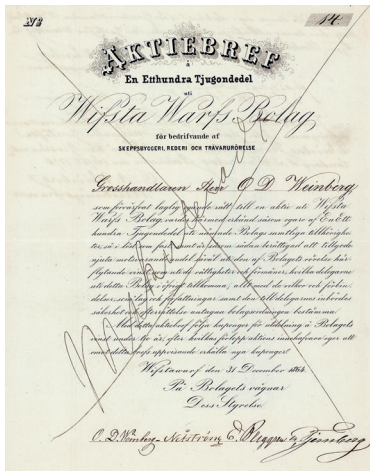 № 14.
AKTIEBREF
å
En Etthundra Tjugondedel
uti
Wifsta Warfs Bolag
för bedrifvande af
SKEPPSBYGGERI, REDERI OCH TRÄVARURÖRELSE
Grosshandlaren Herr O. D. Weinberg
som förvärfvat laglig rätt till en aktie uti Wifsta
Warfs Bolag, varder härmed erkänd såsom egare af En Ett-
hundra Tjugondedel uti nämnde Bolags samtliga tillhörighe-
ter, så i löst som fast, samt är såsom sådan berättigad att tillgodo
njuta motsvarande del såväl uti den af Bolagets rörelse här-
flytande vinst som uti de rättigheter och förmåner, hvilka delegarne
uti detta Bolag i öfrigt tillkomma, allt med de vilkor och förbin-
delser, som lag och författningar samt den till delegarnes inbördes
säkerhet och efterrättelse antagna bolagsordningen bestämma.
Med detta aktiebref följa kuponger för utdelning å Bolagets
vinst under tio år, efter hvilkas förlopp aktiens innehafvare eger att
emot detta brefs uppvisande erhålla nya kuponger.
Wifstawarf den 31 December 1864.
På Bolagets vägnar
Dess Styrelse.
O. D. Weinberg